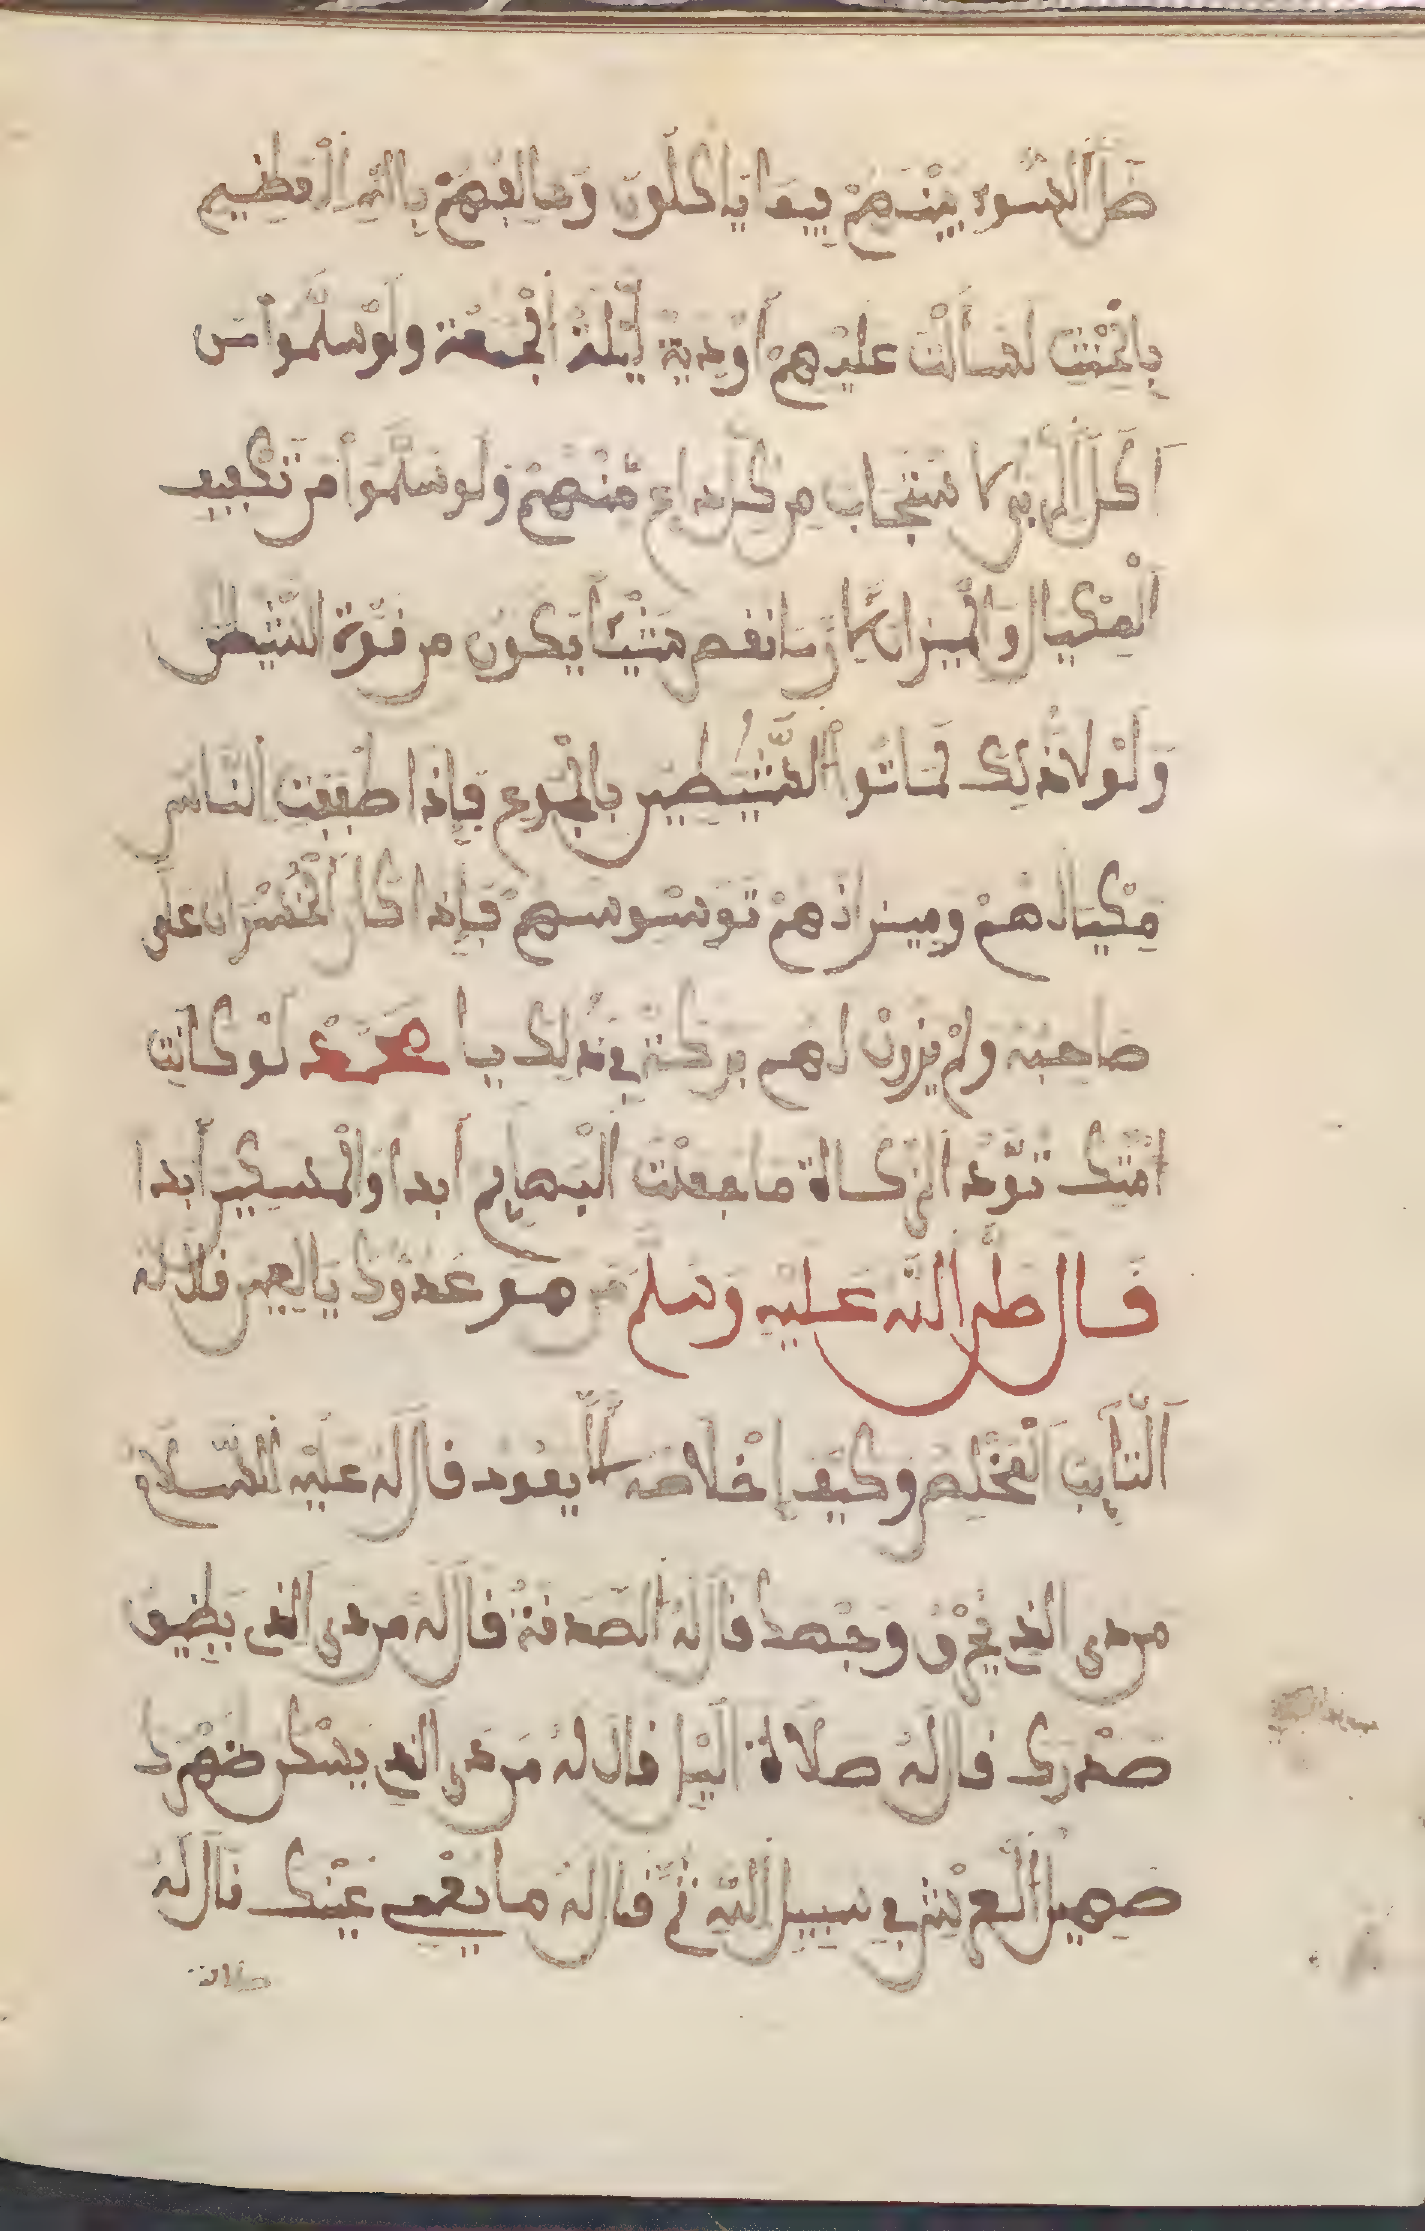 ظل السوء بينهم فيما ياكلون وحالفهم بالله العظيم
بالحنث لسالت عليهم أودية ليلة الجمعة ولو سلموا من
اكل الربى كا نستجاب من كل داع منهم ولو سلموا من تطفيف
المكيال والميزان كا وما نفص شيئا يكون من قوة الشيطن
ولولا ذلك لماتوا الشيطين بالجوع فإذا طففت الناس
مكيالهم وميزانهم توسوسهم فإذا كان الخسران على
صاحبه ولم يزرن لهم بركة في ذلك يا محمد لو كانت
امتك تؤد الزكاة ما جعت البهايم أبدا والمسكين أبدا
قال صلى الله عليه وسلم من هو عدوك يالعين قال له
التايب المخلص وكيف إخلاصه كا يعود قال له عليه السلام
من ذى الذي يحرق وجهك قال له الصدقة قال له من ذى الذي يظيق
صدرك قال له صلاة اليل قال له من ذى الذي يسكر ظهرك
صهيل الفرس في سبيل الله ثم قال له ما يعمي عينك قال له
صلاة